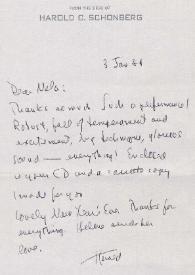 FROM THE DESK OF
HAROLD C. SCHONBERG
3 Jan
Dear
Thanks so much. Such a performance!
Robust, full of temperament and
excitement, big technique, glorious
sound — everything! Enclosed
is your CD and a cassette copy
I made for you
Lovely New Year's Eve. Thanks for
everything. Helene sends her
love.
Harold